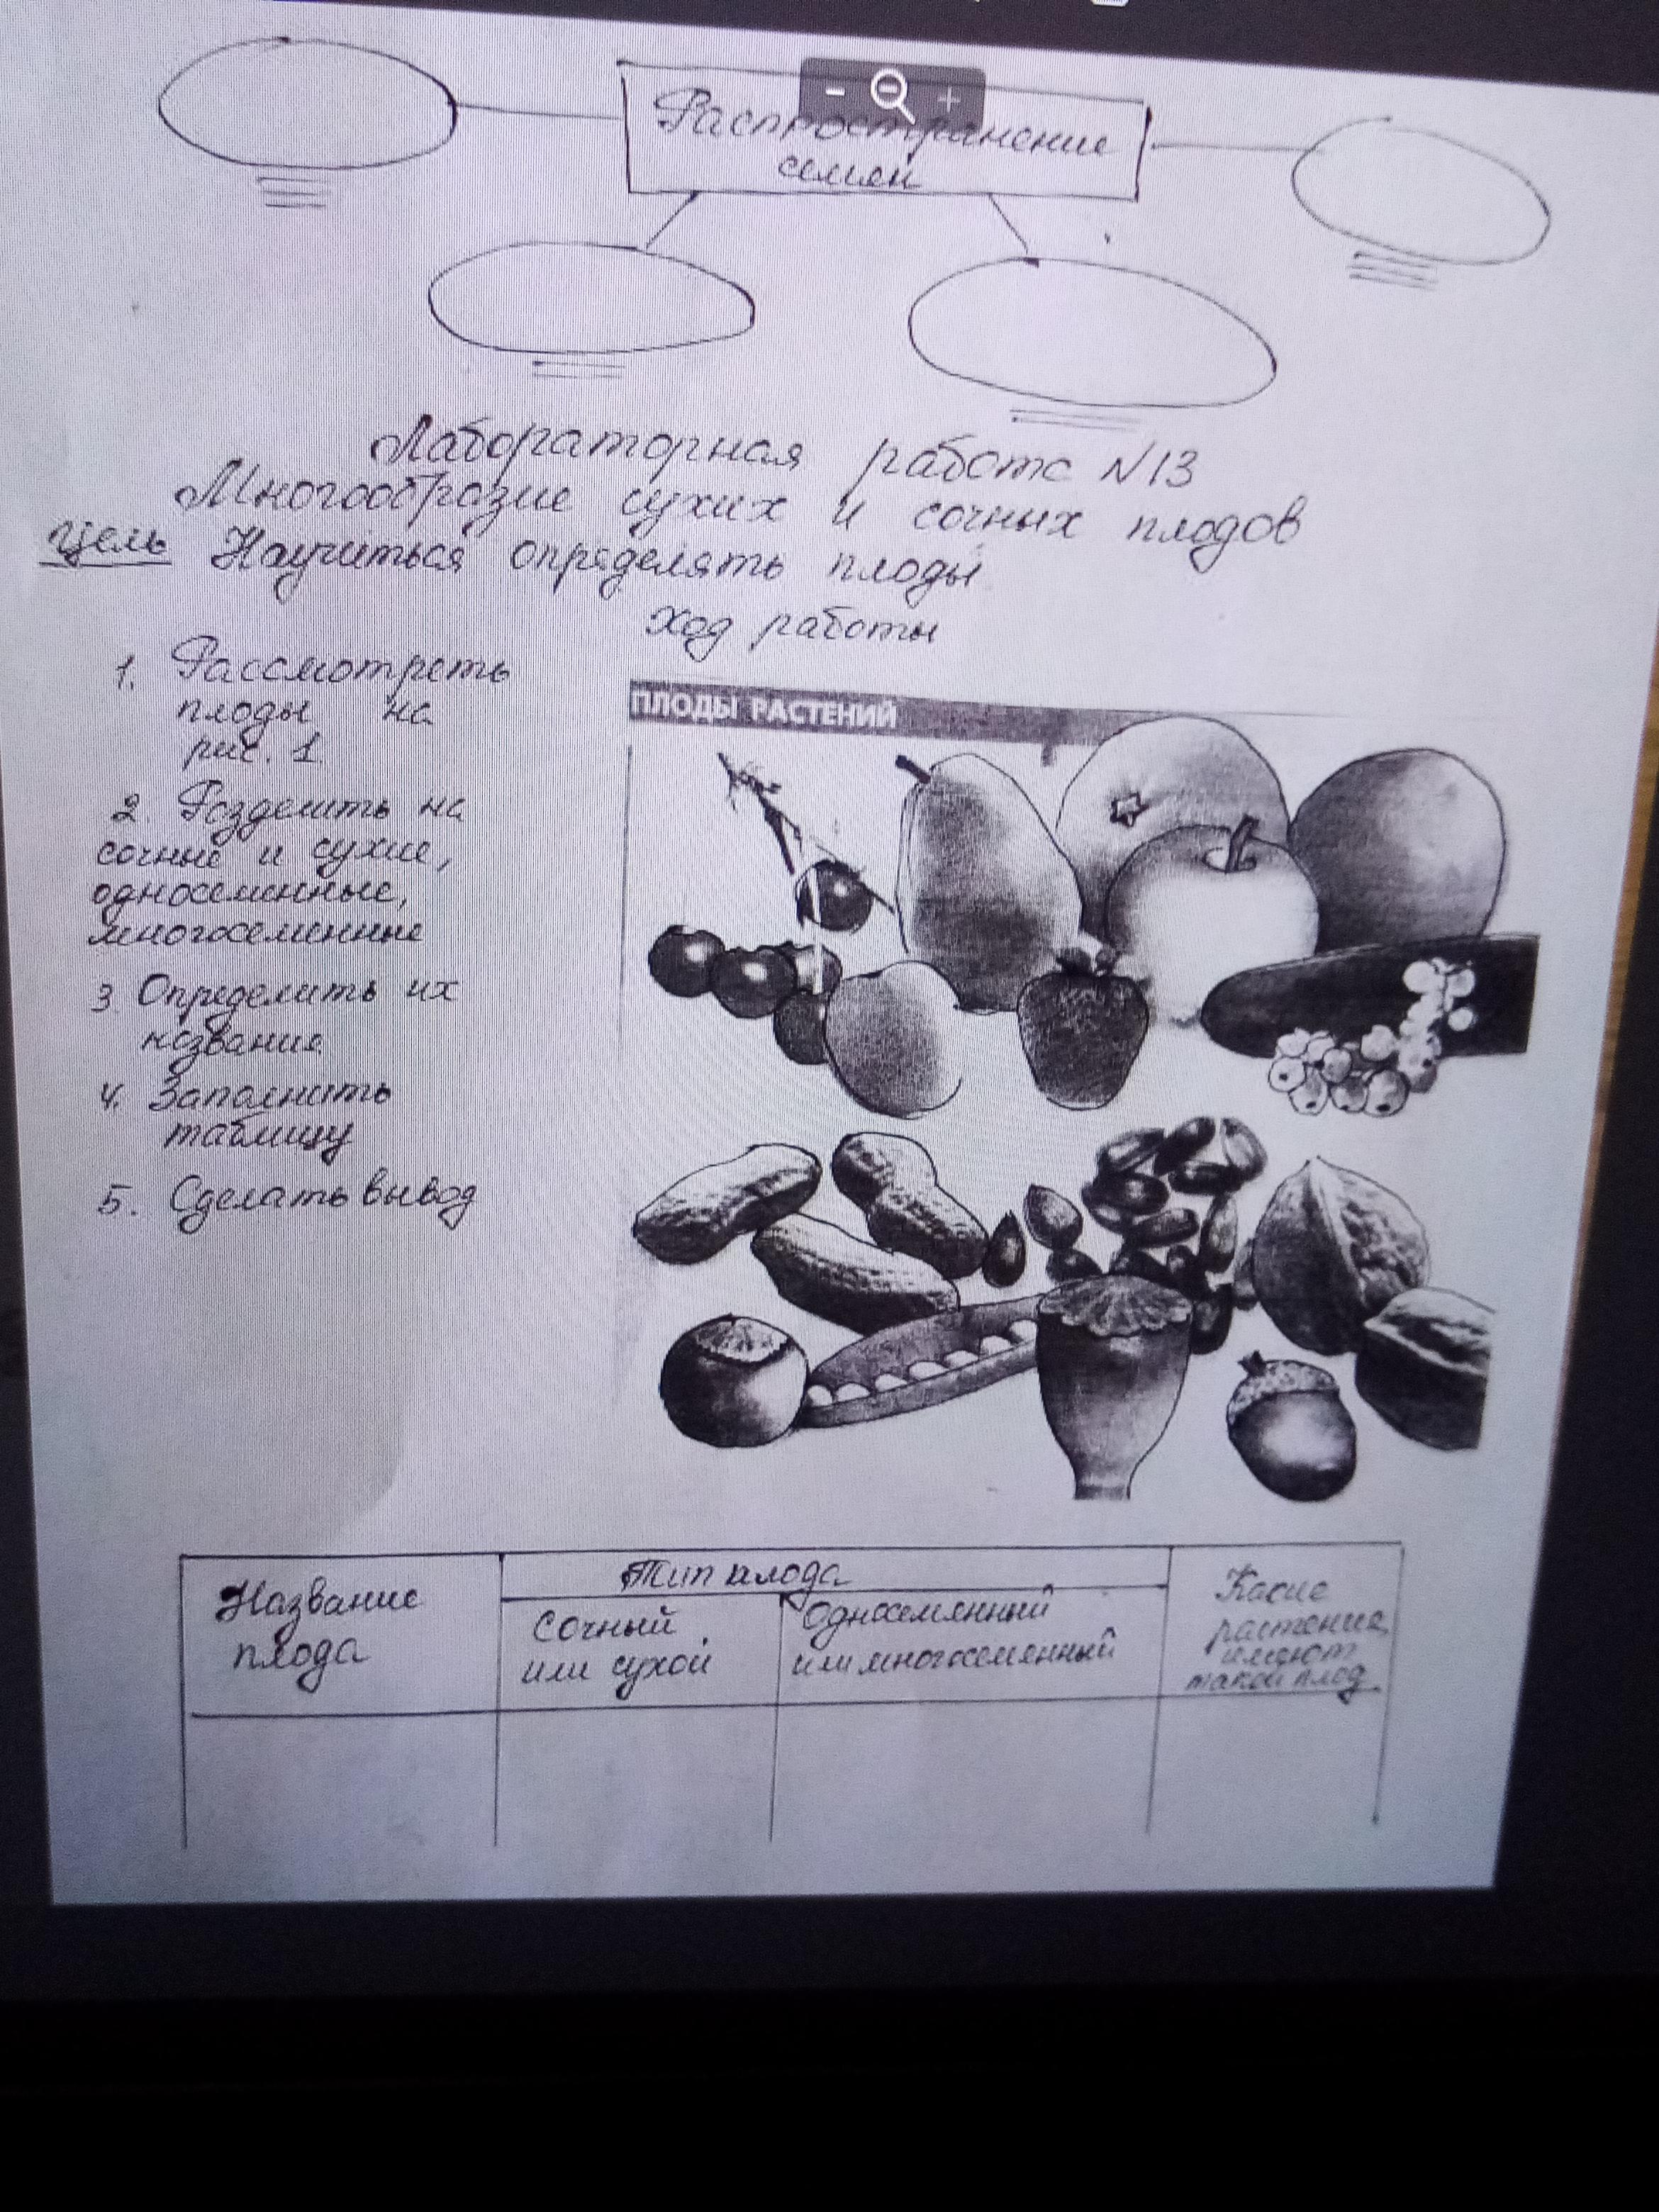 Распространение
семян
Лабораторная работа N13
Многообразие сухих и сочных плодов
Цель Научиться определять плоды
Ход работы
1. Рассмотреть
плоды на
рис. 1.
2. Разделить на
сочные и сухие,
односеменные,
многосеменные
3 Определить их
название
4. Заполнить
таблицу
5. Сделать вывод
ПЛОДЫ РАСТЕНИЙ
Название
плода
Тип плода
Сочный
или сухой
Односемянный
или многосемянный
Какие
растения
имеют
такой плод